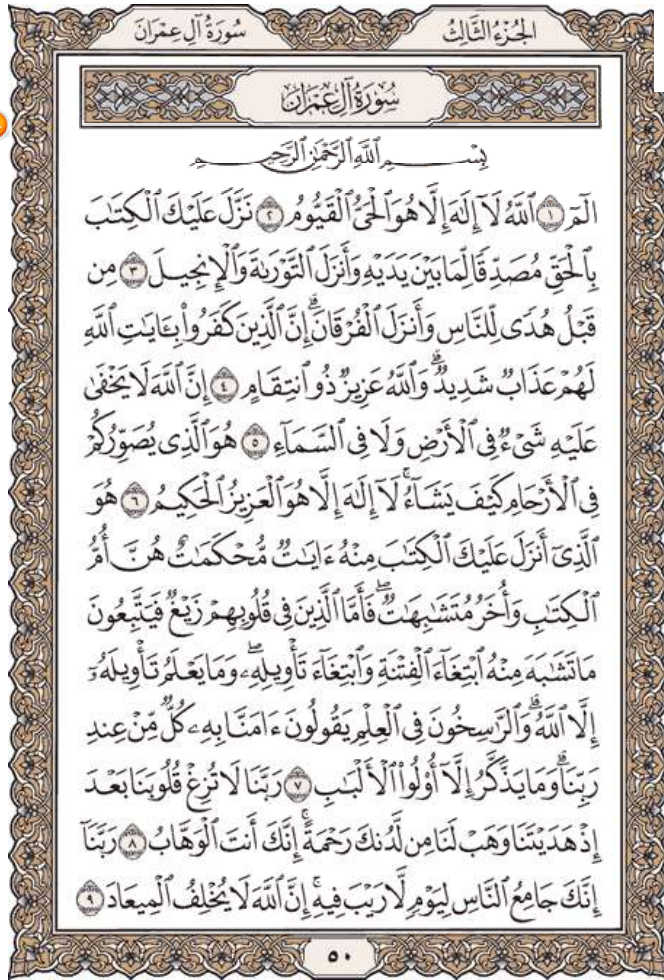 سُورَةُ آلِ عِمْرَانَ الجُزْءُ الثَّالِثُ
سُورَةُ آلِ عِمْرَانَ
بِسْمِ ٱللَّهِ ٱلرَّحْمَٰنِ ٱلرَّحِيمِ
الٓمٓ ١ ٱللَّهُ لَآ إِلَٰهَ إِلَّا هُوَ ٱلْحَىُّ ٱلْقَيُّومُ ٢ نَزَّلَ عَلَيْكَ ٱلْكِتَٰبَ
بِٱلْحَقِّ مُصَدِّقًا لِّمَا بَيْنَ يَدَيْهِ وَأَنزَلَ ٱلتَّوْرَىٰةَ وَٱلْإِنجِيلَ ٣ مِن
قَبْلُ هُدًى لِّلنَّاسِ وَأَنزَلَ ٱلْفُرْقَانَ ۗ إِنَّ ٱلَّذِينَ كَفَرُوا۟ بِـَٔايَٰتِ ٱللَّهِ
لَهُمْ عَذَابٌ شَدِيدٌ ۗ وَٱللَّهُ عَزِيزٌ ذُو ٱنتِقَامٍ ٤ إِنَّ ٱللَّهَ لَا يَخْفَىٰ
عَلَيْهِ شَىْءٌ فِى ٱلْأَرْضِ وَلَا فِى ٱلسَّمَآءِ ٥ هُوَ ٱلَّذِى يُصَوِّرُكُمْ
فِى ٱلْأَرْحَامِ كَيْفَ يَشَآءُ ۚ لَآ إِلَٰهَ إِلَّا هُوَ ٱلْعَزِيزُ ٱلْحَكِيمُ ٦ هُوَ
ٱلَّذِىٓ أَنزَلَ عَلَيْكَ ٱلْكِتَٰبَ مِنْهُ ءَايَٰتٌ مُّحْكَمَٰتٌ هُنَّ أُمُّ
ٱلْكِتَٰبِ وَأُخَرُ مُتَشَٰبِهَٰتٌ ۖ فَأَمَّا ٱلَّذِينَ فِى قُلُوبِهِمْ زَيْغٌ فَيَتَّبِعُونَ
مَا تَشَٰبَهَ مِنْهُ ٱبْتِغَآءَ ٱلْفِتْنَةِ وَٱبْتِغَآءَ تَأْوِيلِهِۦ ۖ وَمَا يَعْلَمُ تَأْوِيلَهُۥٓ
إِلَّا ٱللَّهُ ۗ وَٱلرَّٰسِخُونَ فِى ٱلْعِلْمِ يَقُولُونَ ءَامَنَّا بِهِۦ كُلٌّ مِّنْ عِندِ
رَبِّنَا ۗ وَمَا يَذَّكَّرُ إِلَّآ أُو۟لُوا۟ ٱلْأَلْبَٰبِ ٧ رَبَّنَا لَا تُزِغْ قُلُوبَنَا بَعْدَ
إِذْ هَدَيْتَنَا وَهَبْ لَنَا مِن لَّدُنكَ رَحْمَةً ۚ إِنَّكَ أَنتَ ٱلْوَهَّابُ ٨ رَبَّنَآ
إِنَّكَ جَامِعُ ٱلنَّاسِ لِيَوْمٍ لَّا رَيْبَ فِيهِ ۚ إِنَّ ٱللَّهَ لَا يُخْلِفُ ٱلْمِيعَادَ ٩
٥٠